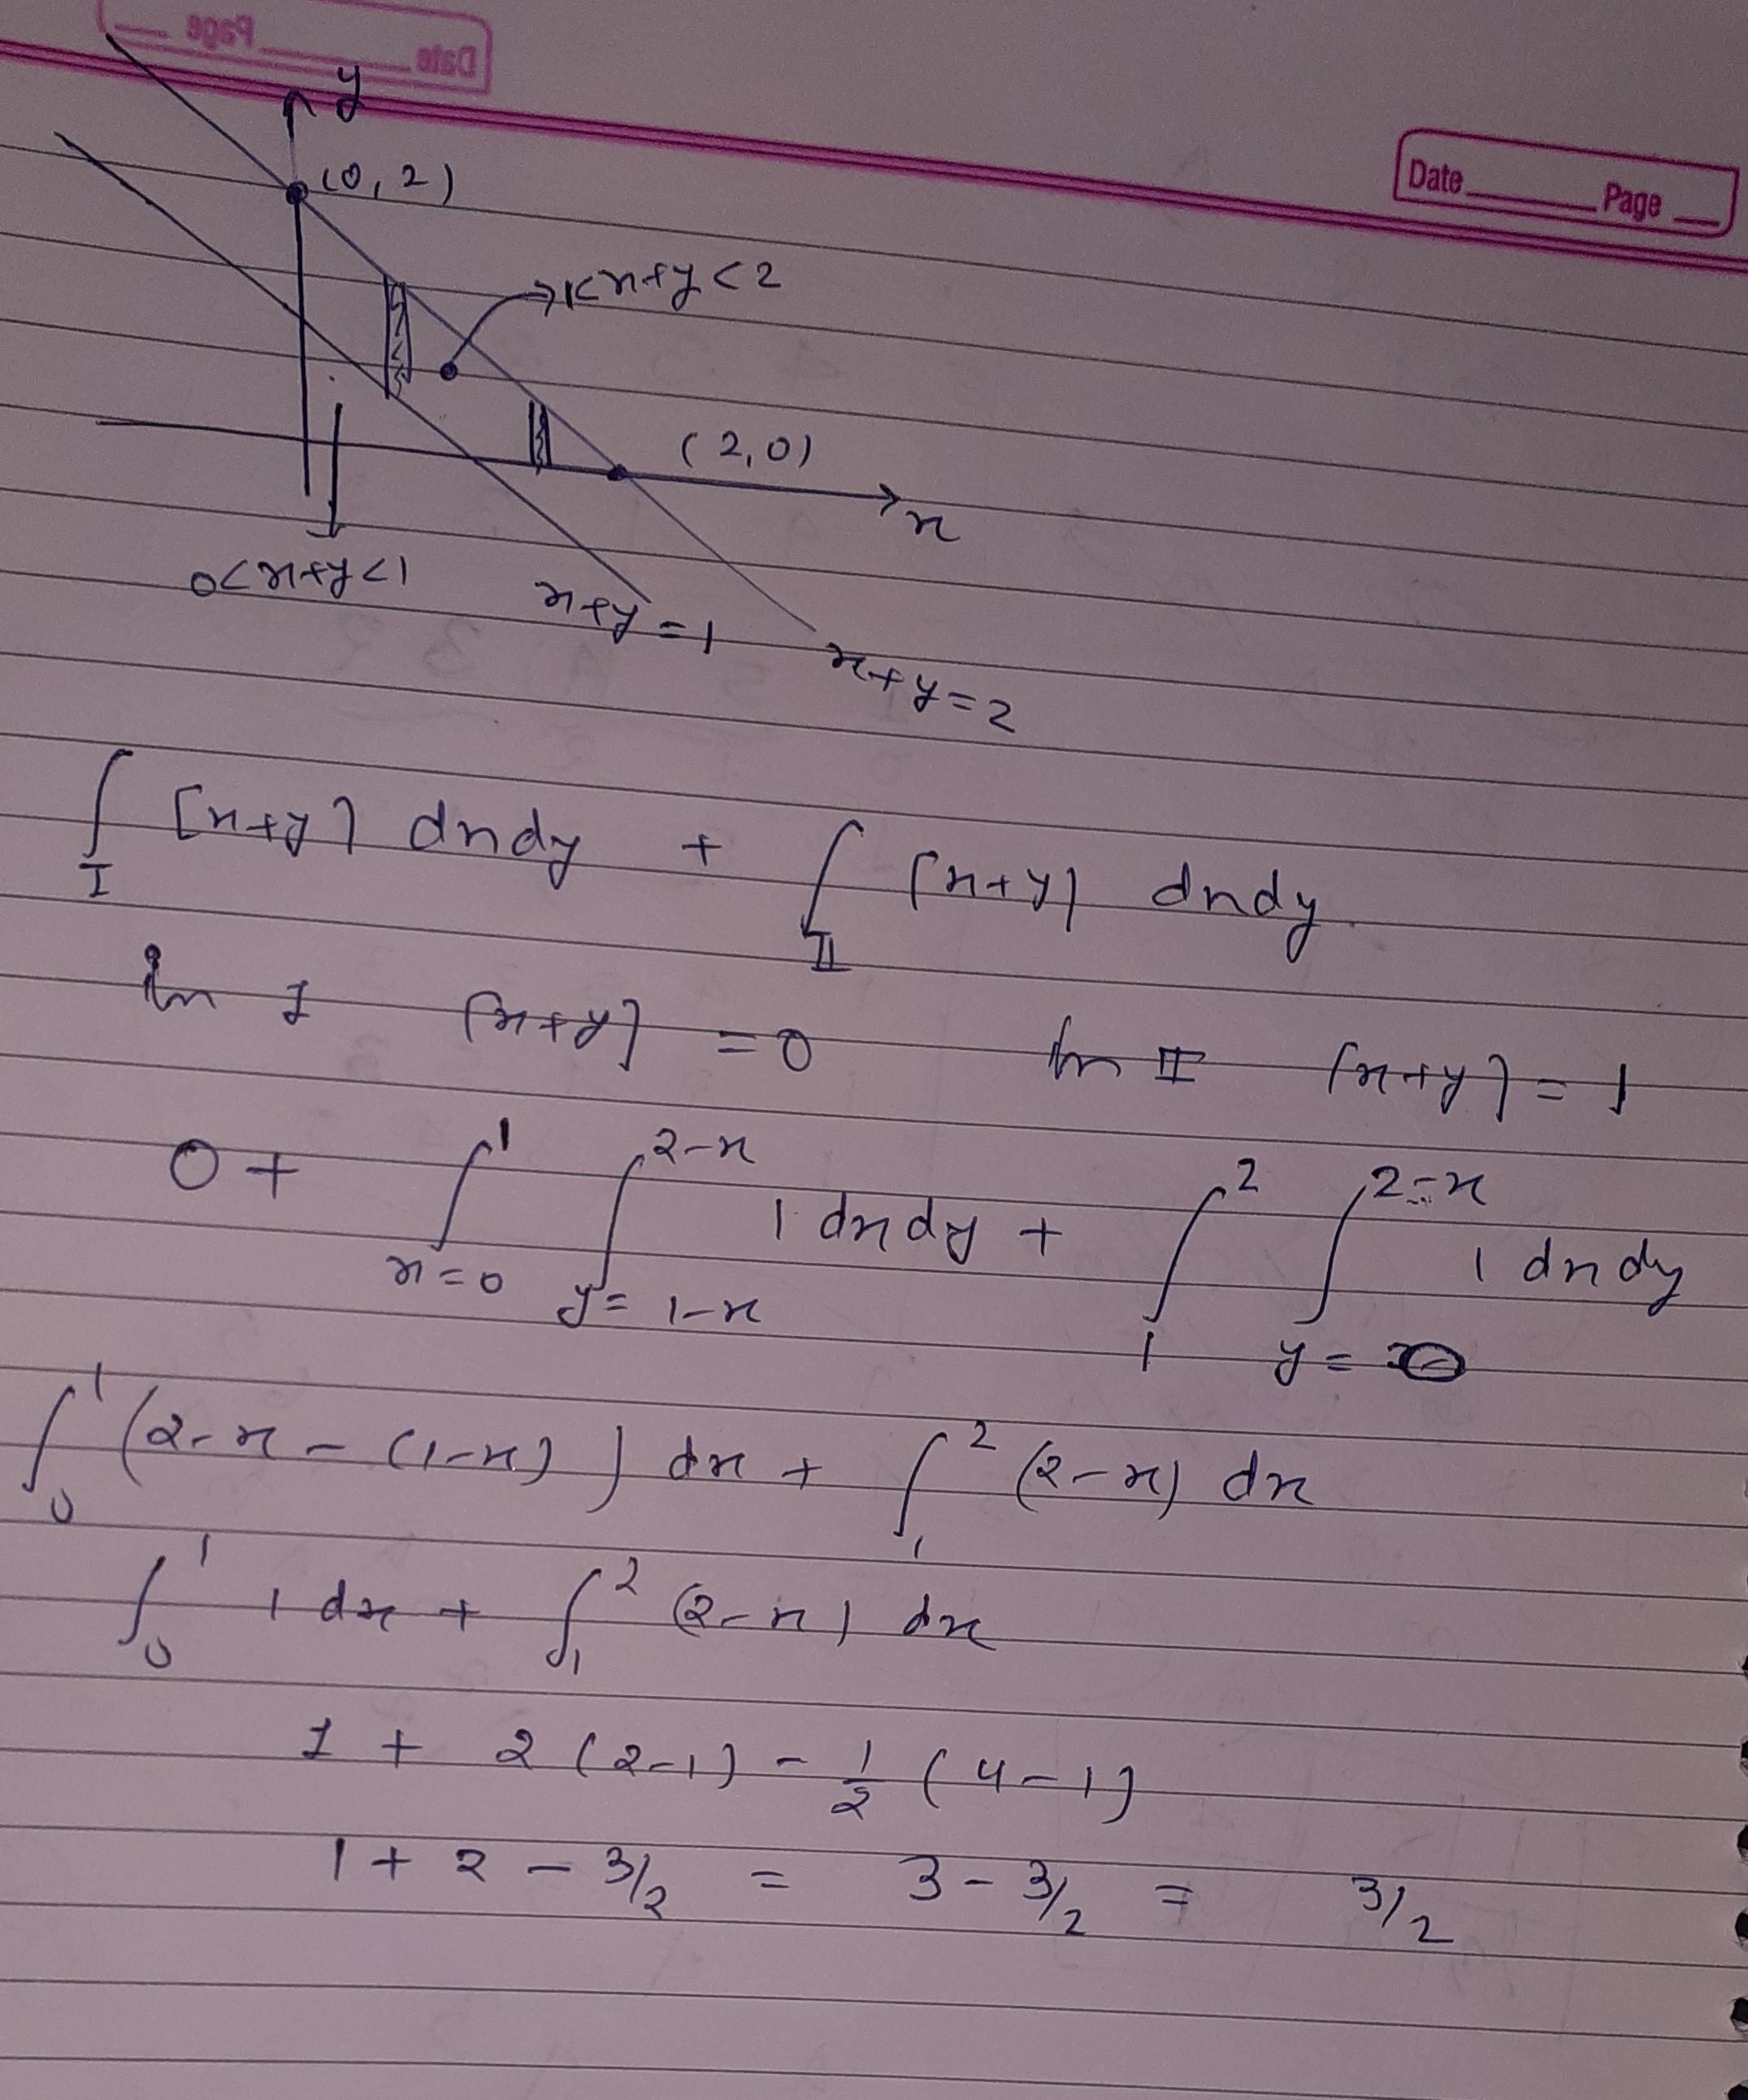 Date Page
Date Page
y
(0,2)
1<x+y<2
(2,0)
x
0<x+y<1
x+y=1
x+y=2
∫_I [x+y] dxdy + ∫_II [x+y] dxdy
In I [x+y] = 0 In II [x+y] = 1
0 + ∫_{x=0}^{1} ∫_{y=1-x}^{2-x} 1 dxdy + ∫_{1}^{2} ∫_{y=0}^{2-x} 1 dxdy
∫_0^1 (2-x-(1-x)) dx + ∫_1^2 (2-x) dx
∫_0^1 1 dx + ∫_1^2 (2-x) dx
1 + 2(2-1) - 1/2 (4-1)
1+2 - 3/2 = 3 - 3/2 = 3/2